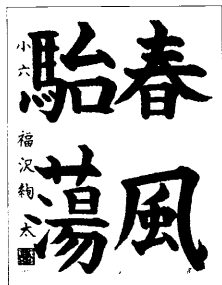 春風
駘蕩
小六 福沢絢太